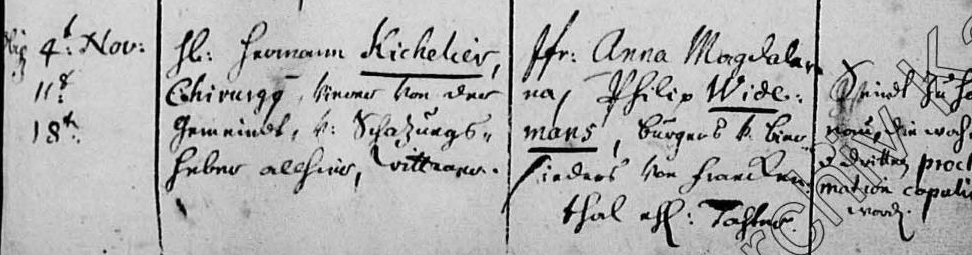 4t. Nov:
11t.
18t.
Hl: Hermann Kichelier,
Chirurgg, Vierer von der
Gemeindt, v: Schatzungs-
heber allhier, Wittwer.
Jfr: Anna Magdale-
na, Philip Wide-
mans, burgers v. bier-
sieders von Francken-
thal ehl: Tochter.
Seindt zu
die
dritten procl
mation copuli
word.